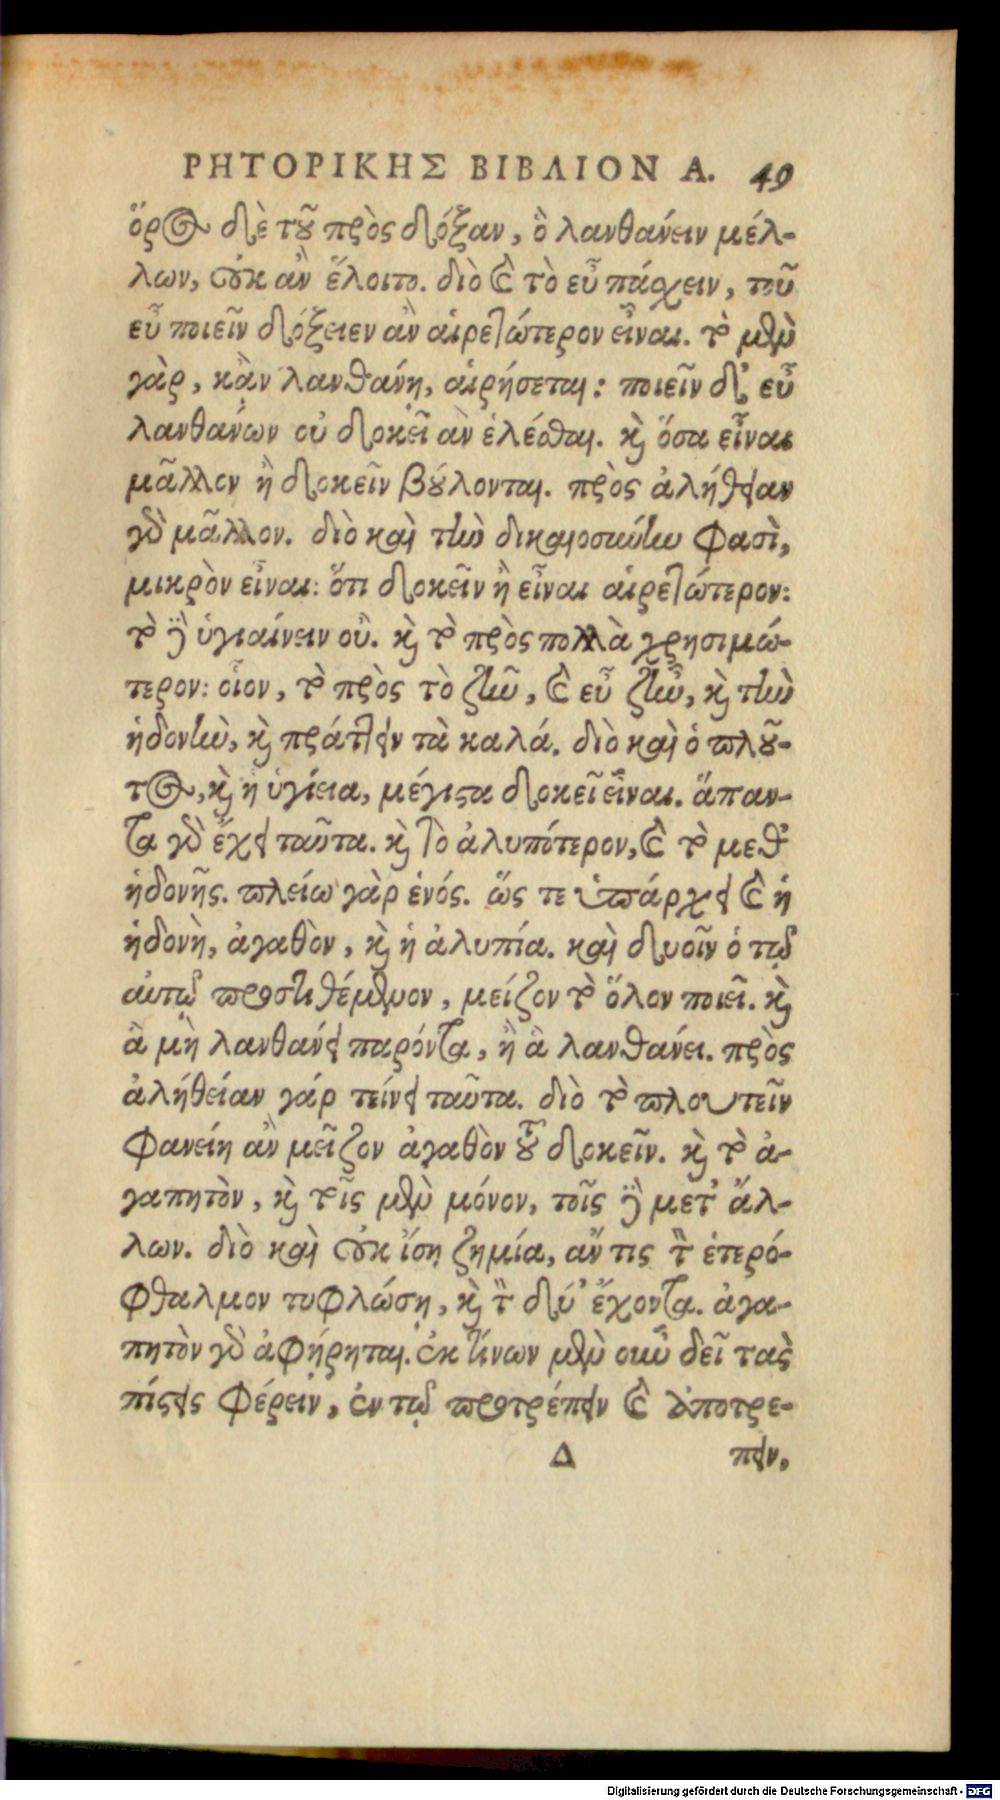 ΡΗΤΟΡΙΚΗΣ ΒΙΒΛΙΟΝ Α. 49
ὅρος δὲ τοῦ πρὸς δόξαν, ὃ λανθάνειν μέλ-
λων, οὐκ ἂν ἕλοιτο. διὸ καὶ τὸ εὖ πάσχειν, τοῦ
εὖ ποιεῖν δόξειεν ἂν αἱρετώτερον εἶναι. τὸ μὲν
γὰρ, κἂν λανθάνῃ, αἱρήσεται: ποιεῖν δ᾽ εὖ
λανθάνων οὐ δοκεῖ ἂν ἑλέσθαι. καὶ ὅσα εἶναι
μᾶλλον ἢ δοκεῖν βούλονται. πρὸς ἀλήθειαν
γὰρ μᾶλλον. διὸ καὶ τὴν δικαιοσύνην φασὶ,
μικρὸν εἶναι: ὅτι δοκεῖν ἢ εἶναι αἱρετώτερον:
τὸ δὲ ὑγιαίνειν οὔ. καὶ τὸ πρὸς πολλὰ χρησιμώ-
τερον: οἷον, τὸ πρὸς τὸ ζῆν, καὶ εὖ ζῆν, καὶ τὴν
ἡδονὴν, καὶ πράττειν τὰ καλά. διὸ καὶ ὁ πλοῦ-
τος, καὶ ἡ ὑγίεια, μέγιστα δοκεῖ εἶναι. ἅπαν-
τα γὰρ ἔχει ταῦτα. καὶ τὸ ἀλυπότερον, καὶ τὸ μεθ᾽
ἡδονῆς. πλείω γὰρ ἑνός. ὥς τε ὑπάρχει καὶ ἡ
ἡδονὴ, ἀγαθὸν, καὶ ἡ ἀλυπία. καὶ δυοῖν ὁ τῷ
αὐτῷ προστιθέμενον, μείζον τὸ ὅλον ποιεῖ. καὶ
ἃ μὴ λανθάνει παρόντα, ἢ ἃ λανθάνει. πρὸς
ἀλήθείαν γάρ τείνει ταῦτα. διὸ τὸ πλουτεῖν
φανείη ἂν μεῖζον ἀγαθὸν τοῦ δοκεῖν. καὶ τὸ ἀ-
γαπητὸν, καὶ τοῖς μὲν μόνον, τοῖς δὲ μετ᾽ ἄλ-
λων. διὸ καὶ οὐκ ἴση ζημία, ἄν τις τὸν ἑτερό-
φθαλμον τυφλώσῃ, καὶ τὸν δύ᾽ ἔχοντα. ἀγα-
πητὸν γὰρ ἀφῄρηται. ἐκ τίνων μὲν οὖν δεῖ τὰς
πίστεις φέρειν, ἐν τῷ προτρέπειν καὶ ἀποτρέ-
Δ πειν,
Digitalisierung gefördert durch die Deutsche Forschungsgemeinschaft - DFG